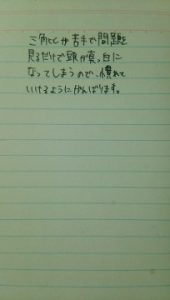 三角比が苦手で問題を
見るだけで頭が真っ白に
なってしまうので、慣れて
いけるようにがんばります。